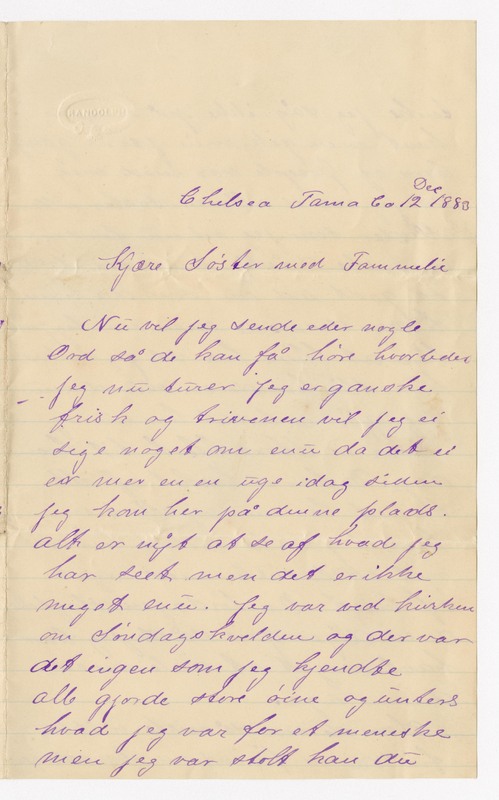 Chelsea Tama Co 12 Dec 1883
Kjære Søster med Fammelie
Nu vil jeg sende eder nogle
Ord så de kan få høre hvorledes
jeg nu turer jeg er ganske
frisk og trivenen vil jeg ei
sige noget om enu da det ei
er mer en en uge idag siden
jeg kom her på denne plads.
alt er nyt at se af hvad jeg
har seet men det er ikke
meget enu. Jeg var ved kirken
om Søndagskvelden og der var
det ingen som jeg kjendte
alle gjorde store öine og unters
hvad jeg var for et meneske
men jeg var stolt kan du